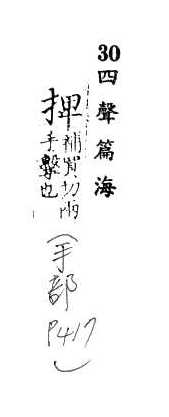 30 四聲篇海
捭 補買切兩
手擊也
(手部 P417)